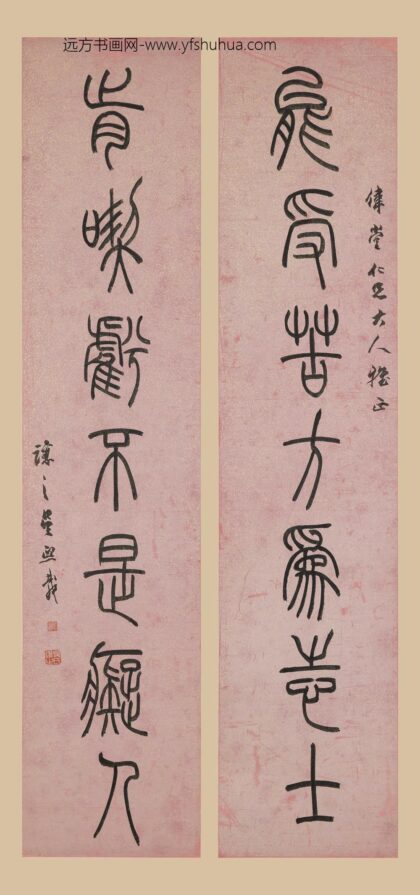 远方书画网-www.yfshuhua.com
能受苦方為志士
偉堂仁兄大人雅正
肯喫虧不是癡人
讓之吳熙載